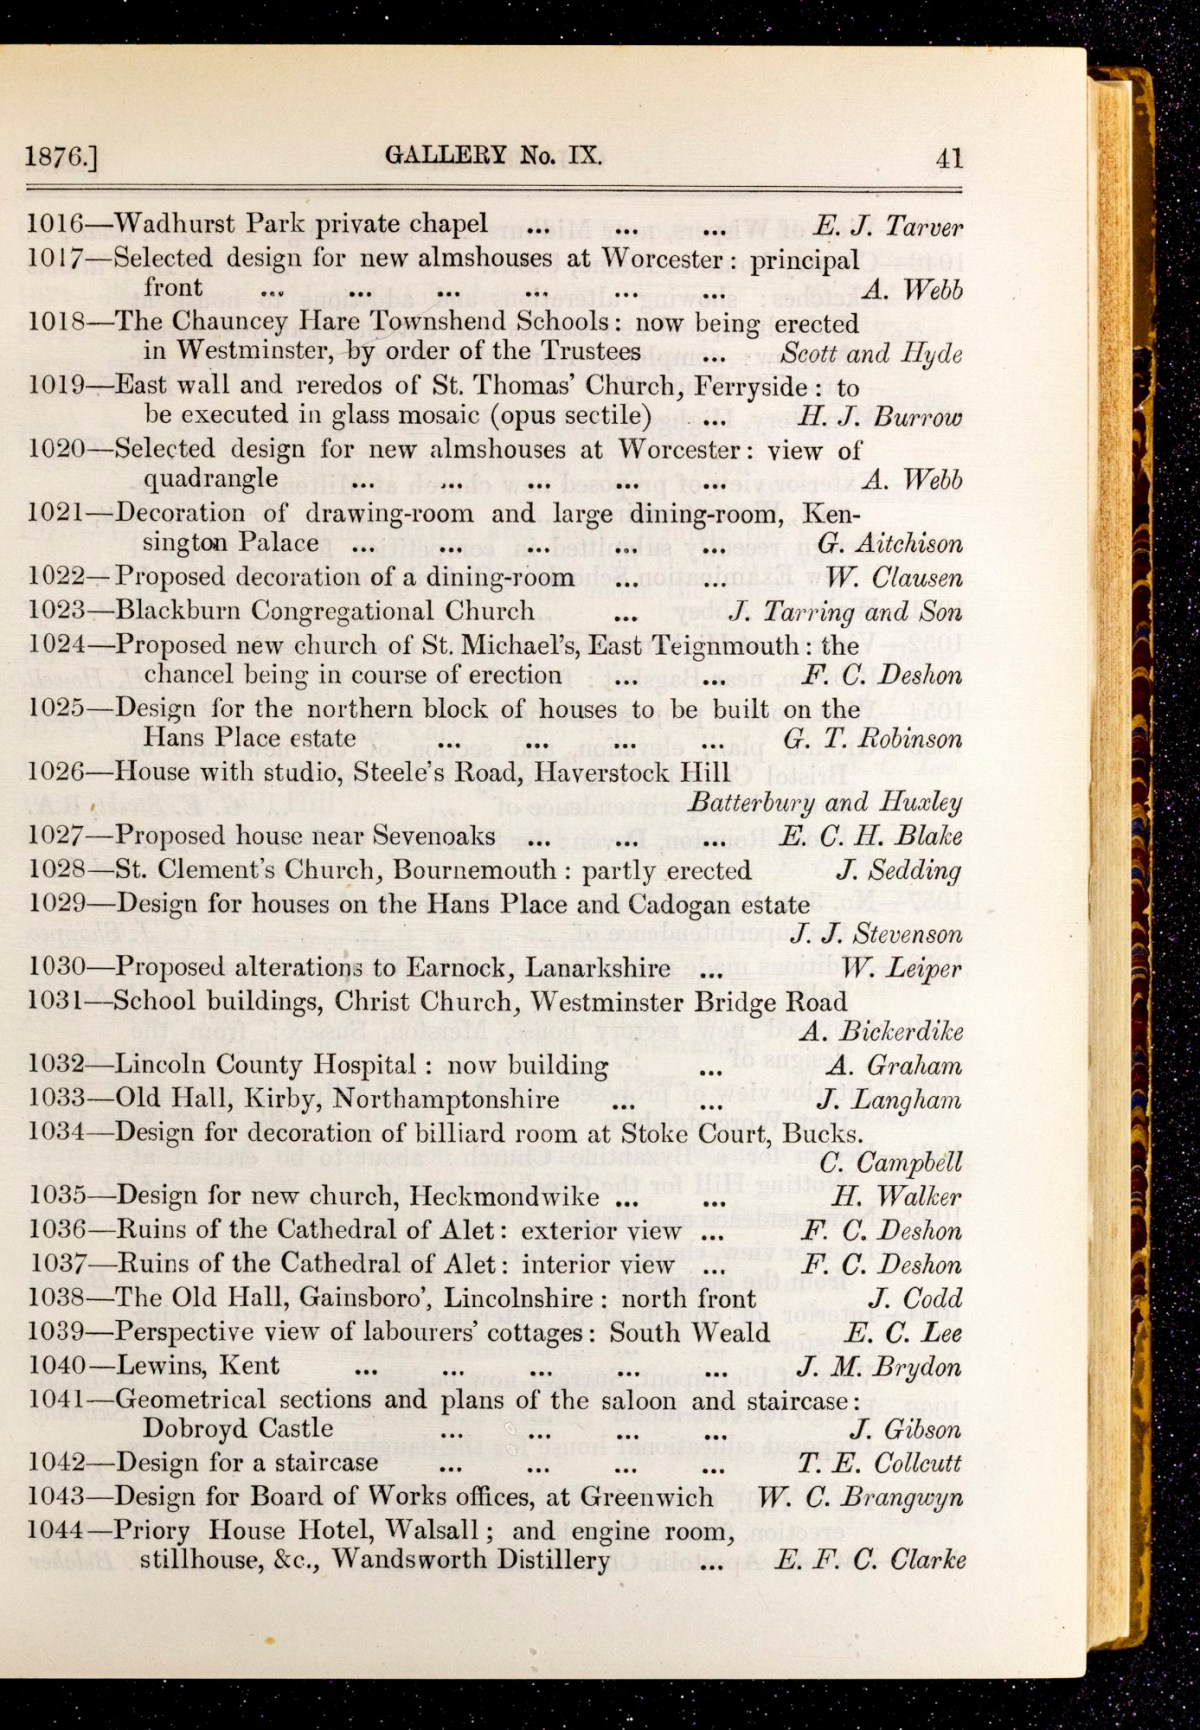 1876.] GALLERY No. IX. 41
1016—Wadhurst Park private chapel ... ... ... E. J. Tarver
1017—Selected design for new almshouses at Worcester: principal
front ... ... ... ... ... ... A. Webb
1018—The Chauncey Hare Townshend Schools: now being erected
in Westminster, by order of the Trustees ... Scott and Hyde
1019—East wall and reredos of St. Thomas' Church, Ferryside: to
be executed in glass mosaic (opus sectile) ... H. J. Burrow
1020—Selected design for new almshouses at Worcester: view of
quadrangle ... ... ... ... ... A. Webb
1021—Decoration of drawing-room and large dining-room, Ken-
sington Palace ... ... ... ... ... G. Aitchison
1022—Proposed decoration of a dining-room ... ... W. Clausen
1023—Blackburn Congregational Church ... J. Tarring and Son
1024—Proposed new church of St. Michael's, East Teignmouth: the
chancel being in course of erection ... ... F. C. Deshon
1025—Design for the northern block of houses to be built on the
Hans Place estate ... ... ... ... G. T. Robinson
1026—House with studio, Steele's Road, Haverstock Hill
Batterbury and Huxley
1027—Proposed house near Sevenoaks ... ... ... E. C. H. Blake
1028—St. Clement's Church, Bournemouth: partly erected J. Sedding
1029—Design for houses on the Hans Place and Cadogan estate
J. J. Stevenson
1030—Proposed alterations to Earnock, Lanarkshire ... W. Leiper
1031—School buildings, Christ Church, Westminster Bridge Road
A. Bickerdike
1032—Lincoln County Hospital: now building ... A. Graham
1033—Old Hall, Kirby, Northamptonshire ... ... J. Langham
1034—Design for decoration of billiard room at Stoke Court, Bucks.
C. Campbell
1035—Design for new church, Heckmondwike ... ... H. Walker
1036—Ruins of the Cathedral of Alet: exterior view ... F. C. Deshon
1037—Ruins of the Cathedral of Alet: interior view ... F. C. Deshon
1038—The Old Hall, Gainsboro', Lincolnshire: north front J. Codd
1039—Perspective view of labourers' cottages: South Weald E. C. Lee
1040—Lewins, Kent ... ... ... ... ... J. M. Brydon
1041—Geometrical sections and plans of the saloon and staircase:
Dobroyd Castle ... ... ... ... J. Gibson
1042—Design for a staircase ... ... ... ... T. E. Collcutt
1043—Design for Board of Works offices, at Greenwich W. C. Brangwyn
1044—Priory House Hotel, Walsall; and engine room,
stillhouse, &c., Wandsworth Distillery ... E. F. C. Clarke